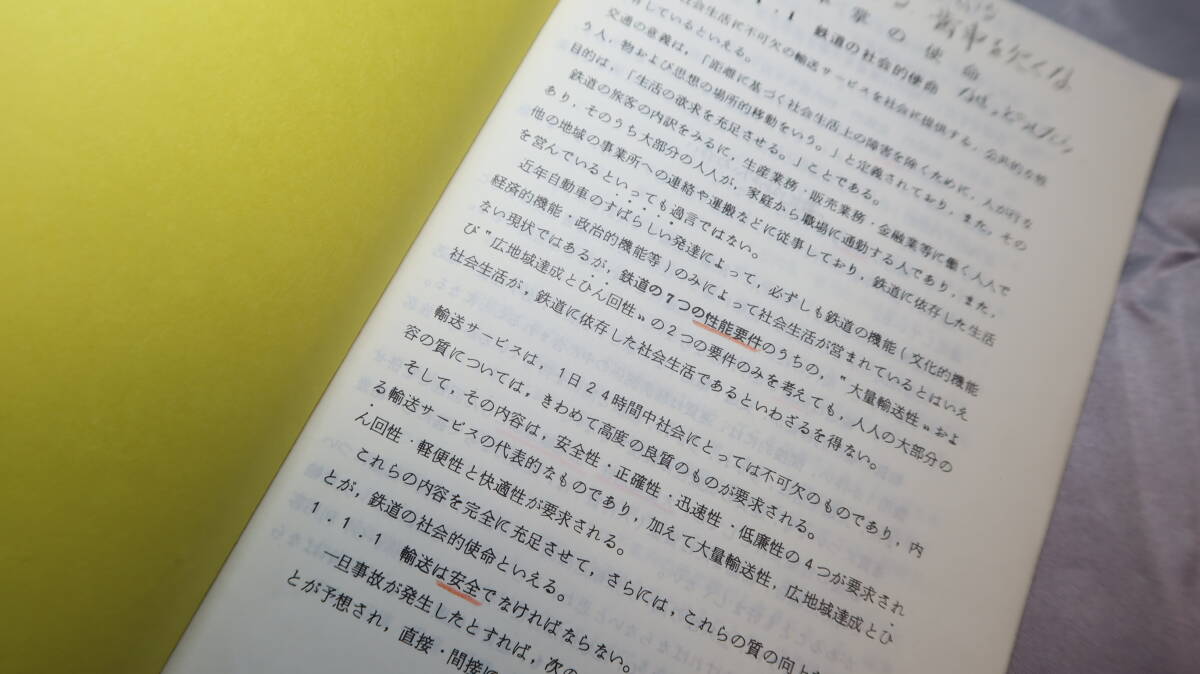 掌の使命
1.1 鉄道の社会的使命
社会生活に不可欠の輸送サービスを社会に提供する,公共的な性
有しているといえる。
交通の意義は,「距離に基づく社会生活上の障害を除くために,人が行な
う人,物および思想の場所的移動をいう。」と定義されており,また,その
目的は,「生活の欲求を充足させる。」ことである。
鉄道の旅客の内訳をみるに,生産業務・販売業務・金融業等に働く人人で
あり,そのうち大部分の人人が,家庭から職場に通動する人であり,また,
他の地域の事業所への連絡や運搬などに従事しており,鉄道に依存した生活
を営んでいるといっても過言ではない。
近年自動車のすばらしい発達によって,必ずしも鉄道の機能(文化的機能
経済的機能・政治的機能等)のみによって社会生活が営まれているとはいえ
ない現状ではあるが,鉄道の7つの性能要件のうちの,〝大量輸送性〟およ
び〝広地域達成とひん回性〟の2つの要件のみを考えても,人人の大部分の
社会生活が,鉄道に依存した社会生活であるといわざるを得ない。
輸送サービスは,1日24時間中社会にとっては不可欠のものであり,内
容の質については,きわめて高度の良質のものが要求される。
そして,その内容は,安全性・正確性・迅速性・低廉性の4つが要求され
る輸送サービスの代表的なものであり,加えて大量輸送性,広地域達成とひ
ん回性・軽便性と快適性が要求される。
これらの内容を完全に充足させて,さらには,これらの質の向上
とが,鉄道の社会的使命といえる。
1.1.1 輸送は安全でなければならない。
一旦事故が発生したとすれば,次の
とが予想され,直接・間接に